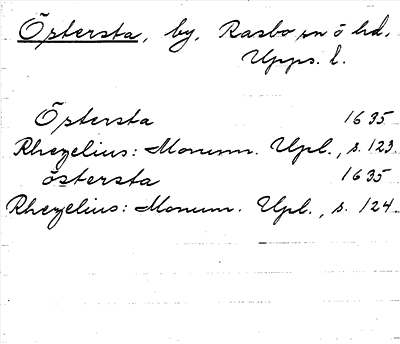 Östersta, by, Rasbo sn o hd,
Upps. l.
Östersta 1635
Rhezelius: Monum. Upl., s. 123.
östersta 1635
Rhezelius: Monum. Upl., s. 124